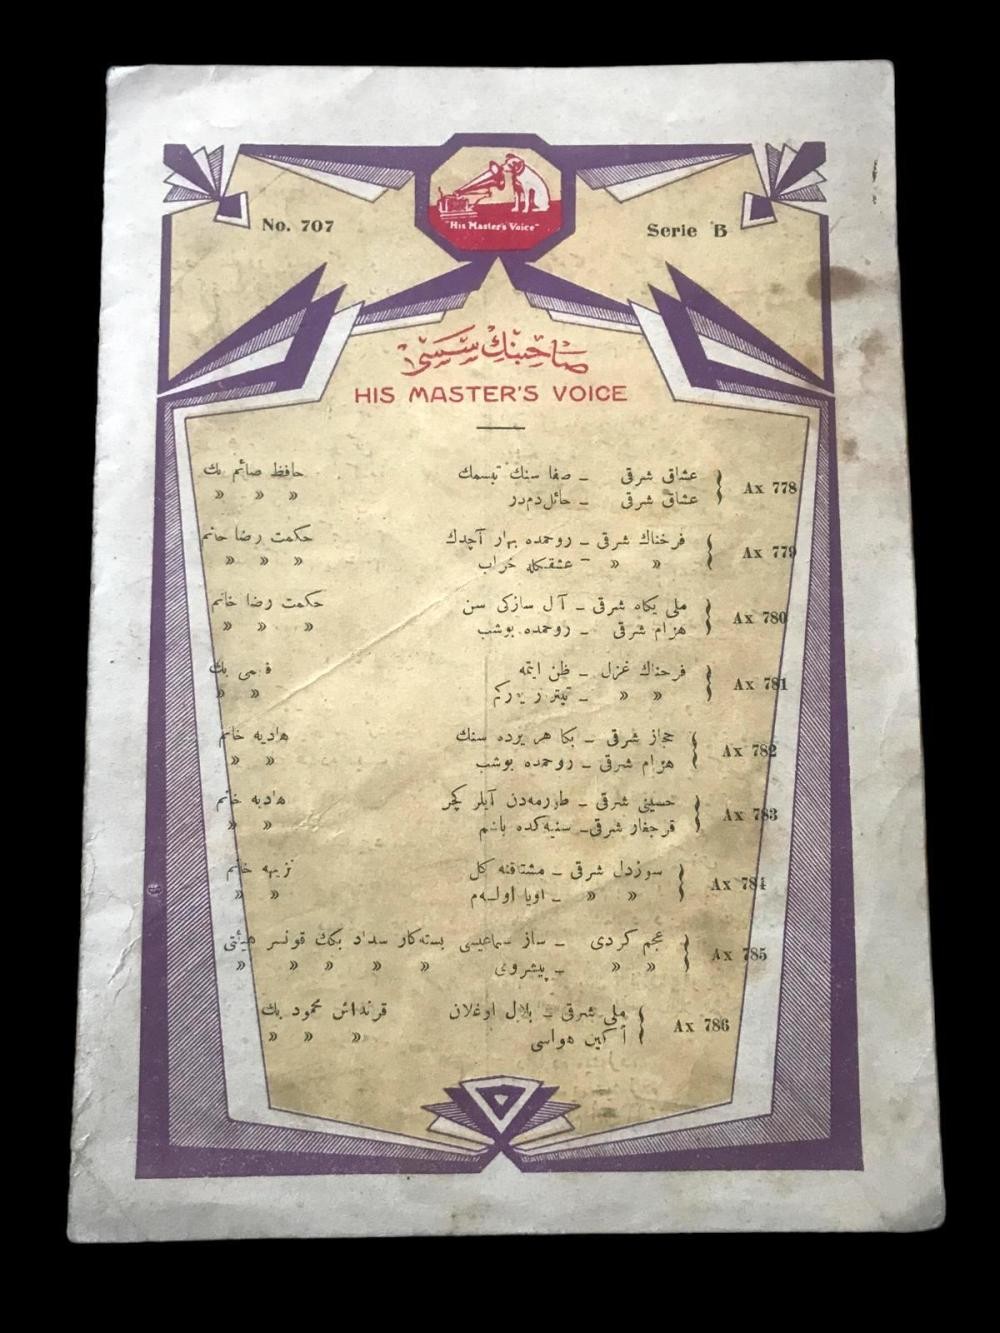 "His Master's Voice"
No. 707
Serie B
صاحبنك سسى
HIS MASTER'S VOICE
Ax 778 { عشاق شرقى – صفا سنك تبسمك حافظ صائم بك
عشاق شرقى – حائل دمدر » » »
Ax 779 { فرخناك شرقى – روحمده بهار آچدك حكمت رضا خانم
» » – عشقكله خراب » » »
Ax 780 { ملى يكاه شرقى – آل سازكى سن حكمت رضا خانم
هزام شرقى – روحمده بوشب » » »
Ax 781 { فرحناك غزل – ظن ايتمه بك
» » – » »
Ax 782 { حجاز شرقى – بكا هر يرده سنك هاديه خانم
هزام شرقى – روحمده بوشب » »
Ax 783 { حسينى شرقى – طورمه‌دن آيلر كچر هاديه خانم
قرجغار شرقى – سنيه‌كده باشم » »
Ax 784 { سوزدل شرقى – مشتاقنه كل نزيهه خانم
» » – اويا اوله‌م » »
Ax 785 { عجم كردى – ساز سماعيسى بسته‌كار سداد بكك قونسر هيئتى
» » – پيشروى » » » » »
Ax 786 { ملى شرقى – بلال اوغلان قرنداش محمود بك
اكين هواسى » » »